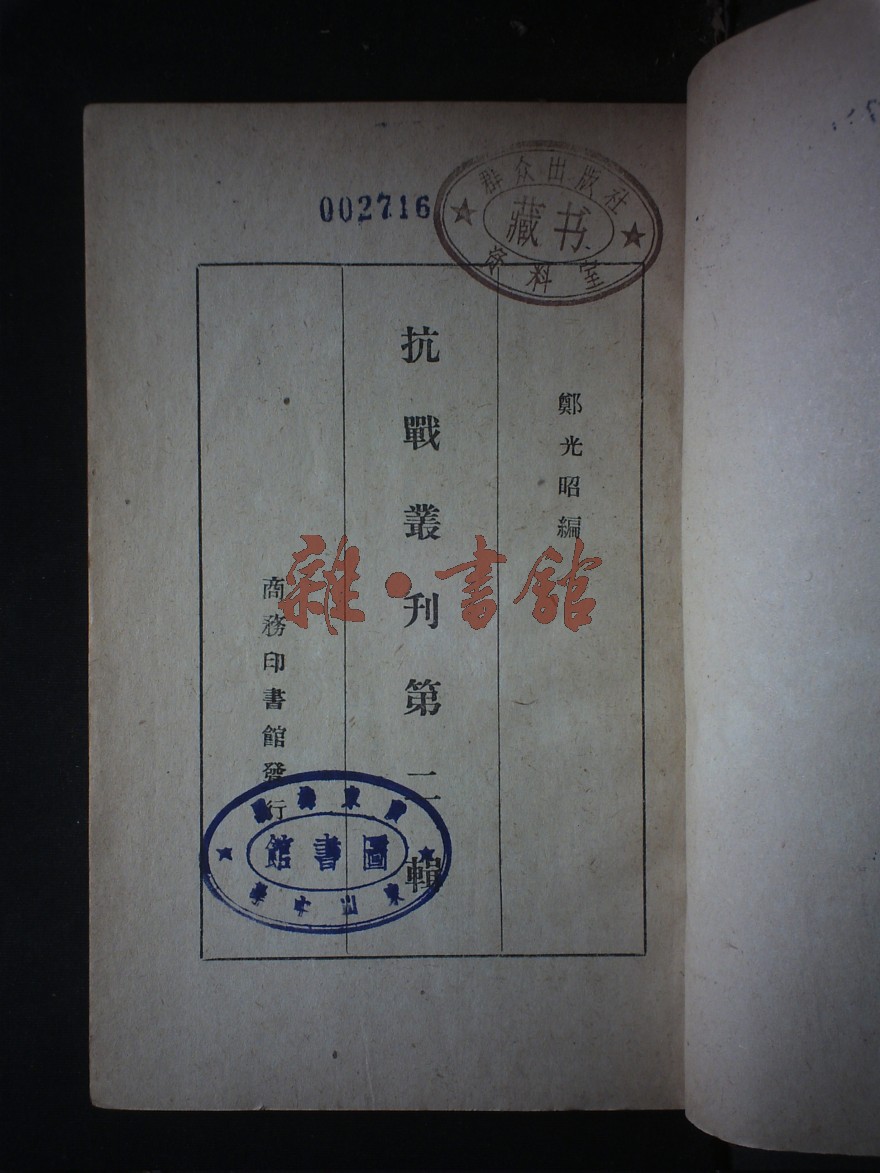 002716
群众出版社
藏书
资料室
鄭光昭編
抗戰叢刊第二輯
商務印書館發行
雜·書館
圖書館
東山中學